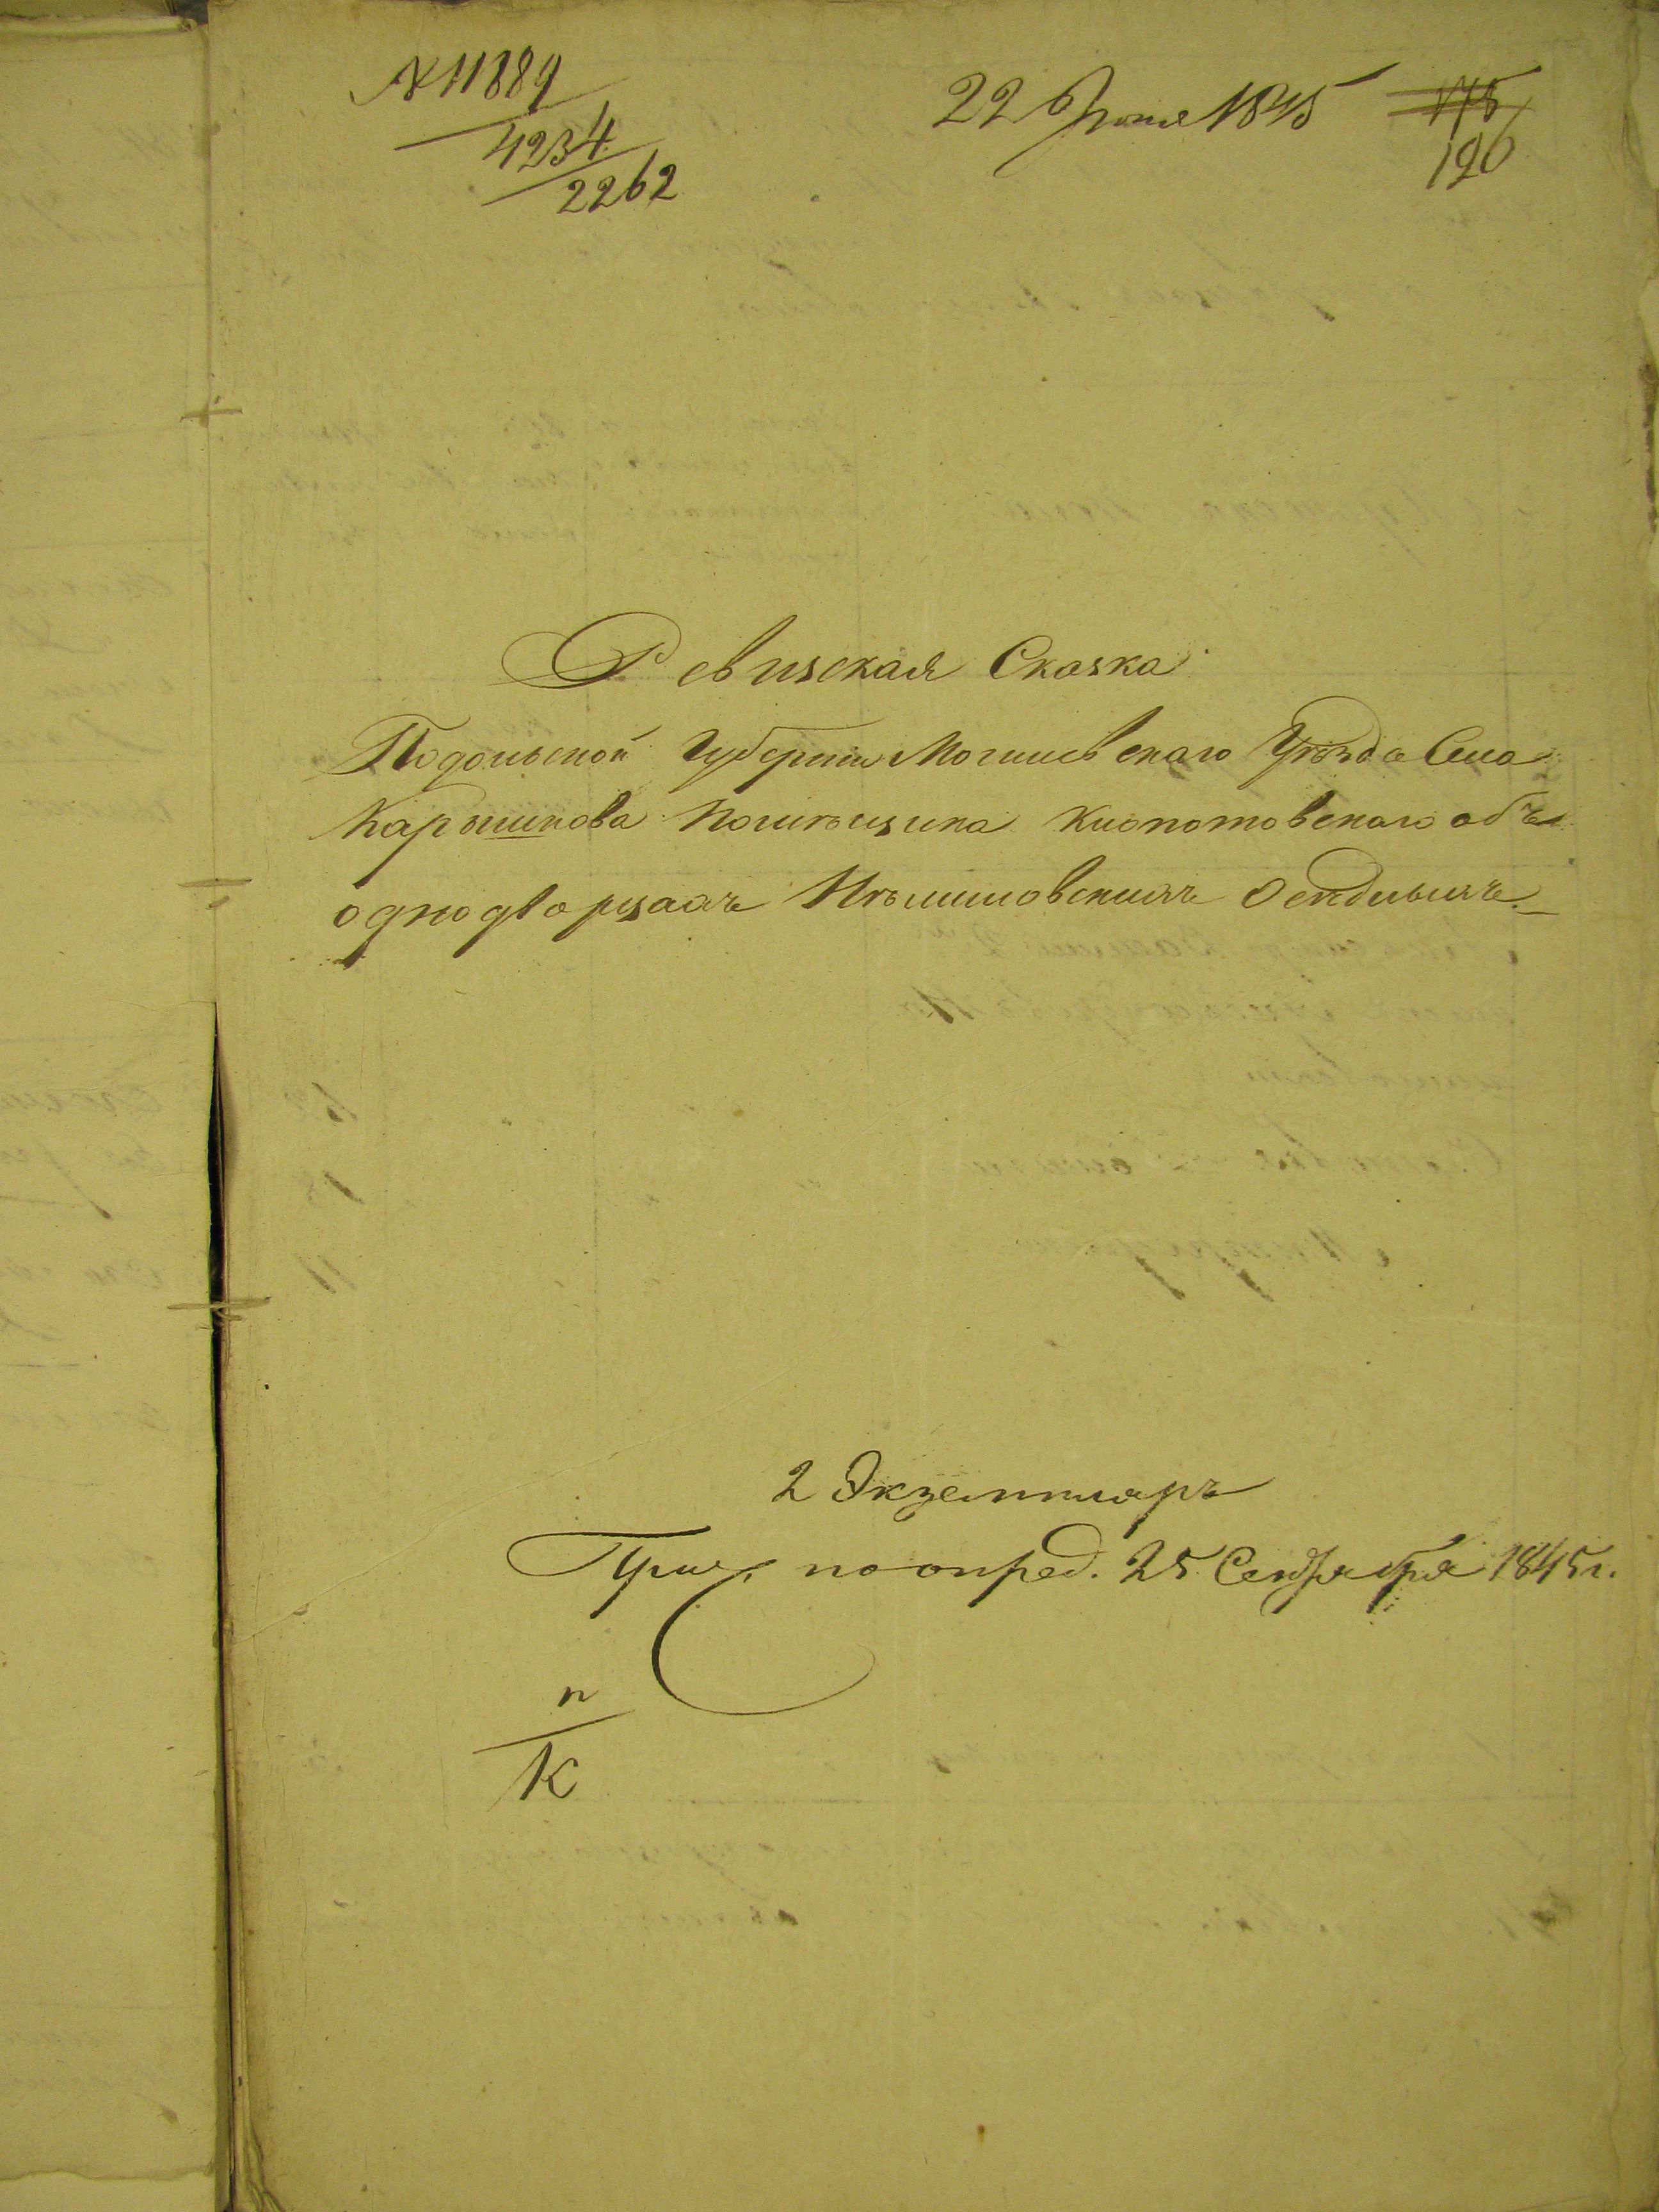 № 11889
4234
2262
22 Июня 1845
175
126
Ревизская Сказка
Подольской Губернии Могилевскаго Уѣзда Села
Карышкова Помѣщика Клопотовскаго объ
однодворцахъ осѣдлыхъ.
2 Экземпляръ
по опред. 25 Сентября 1845 г.
п
К